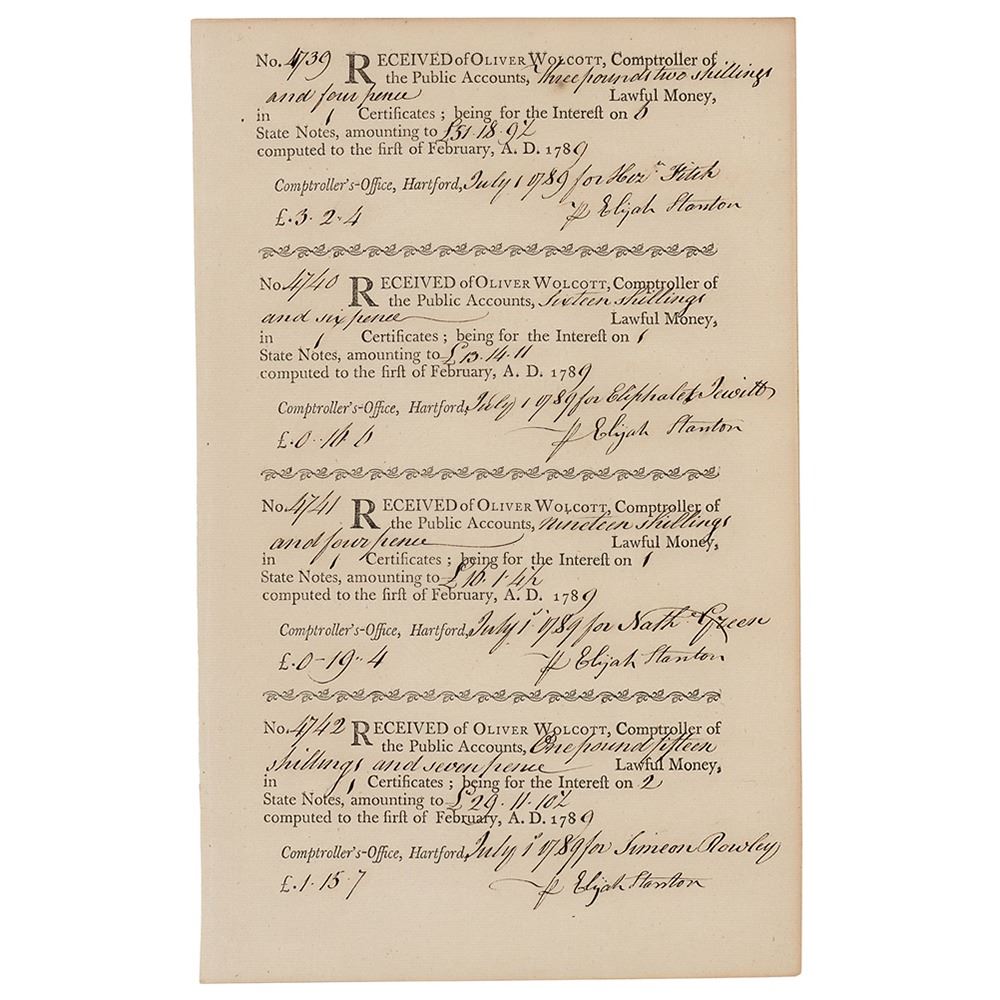 No. 4739 RECEIVED of OLIVER WOLCOTT, Comptroller of
the Public Accounts, Three pounds two shillings
and four pence Lawful Money,
in 1 Certificates ; being for the Intereſt on 6
State Notes, amounting to £51.18.9½
computed to the firſt of February, A. D. 1789
Comptroller's-Office, Hartford, July 1 1789 for Hez.ʰ Fitch
£.3.2.4 ⅌ Elijah Stanton
No. 4740 RECEIVED of OLIVER WOLCOTT, Comptroller of
the Public Accounts, Sixteen shillings
and six pence Lawful Money,
in 1 Certificates ; being for the Intereſt on 1
State Notes, amounting to £13.14.11
computed to the firſt of February, A. D. 1789
Comptroller's-Office, Hartford, July 1 1789 for Eliphalet Jewitt
£.0..16.6 ⅌ Elijah Stanton
No. 4741 RECEIVED of OLIVER WOLCOTT, Comptroller of
the Public Accounts, nineteen shillings
and four pence Lawful Money,
in 1 Certificates ; being for the Intereſt on 1
State Notes, amounting to £16.1.4½
computed to the firſt of February, A. D. 1789
Comptroller's-Office, Hartford, July 1ˢᵗ 1789 for Nathˡ Green
£.0-19..4 ⅌ Elijah Stanton
No. 4742 RECEIVED of OLIVER WOLCOTT, Comptroller of
the Public Accounts, One pound fifteen
shillings and seven pence Lawful Money,
in 1 Certificates ; being for the Intereſt on 2
State Notes, amounting to £29.11.10½
computed to the firſt of February, A. D. 1789
Comptroller's-Office, Hartford, July 1ˢᵗ 1789 for Simeon Rowley
£.1.15.7 ⅌ Elijah Stanton